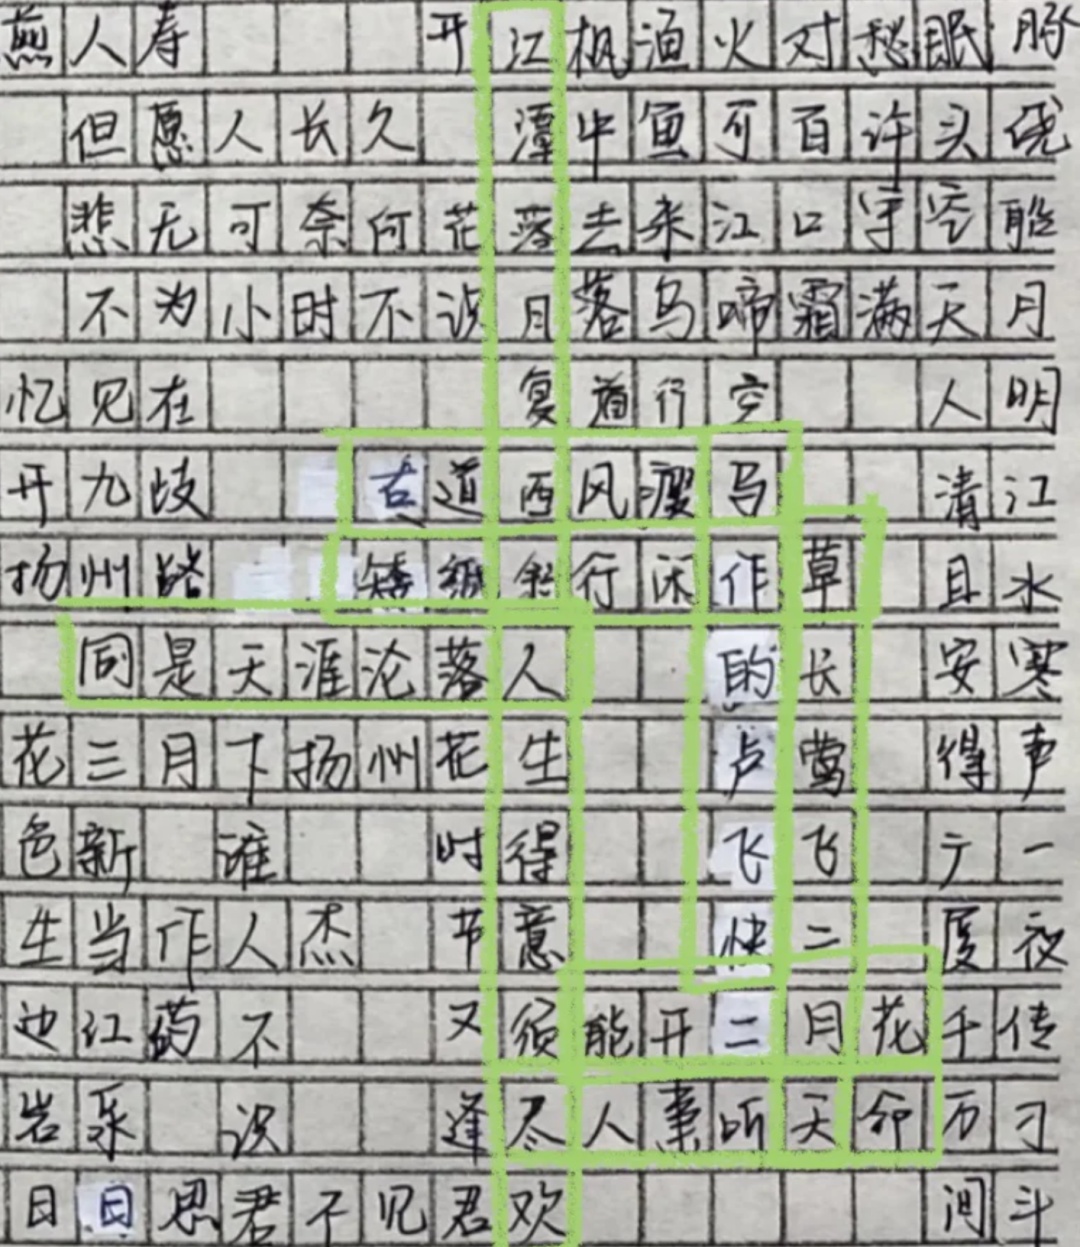 煎人寿 开江枫渔火对愁眠豚
但愿人长久 潭中鱼可百许头晓
悲无可奈何花落去来江口守空船
不为小时不识月落乌啼霜满天月
忆见在 复道行空 人明
开九歧 古道西风瘦马 清江
扬州路 矮纸斜行闲作草 且水
同是天涯沦落人 的长 安寒
花三月下扬州花生 卢莺 得声
色新 谁 时得 飞飞 广一
生当作人杰 节意 快二 厦夜
边江药不 又须能开二月花千传
岩乐 识 逢尽人事听天命万刁
日日思君不见君欢 间斗